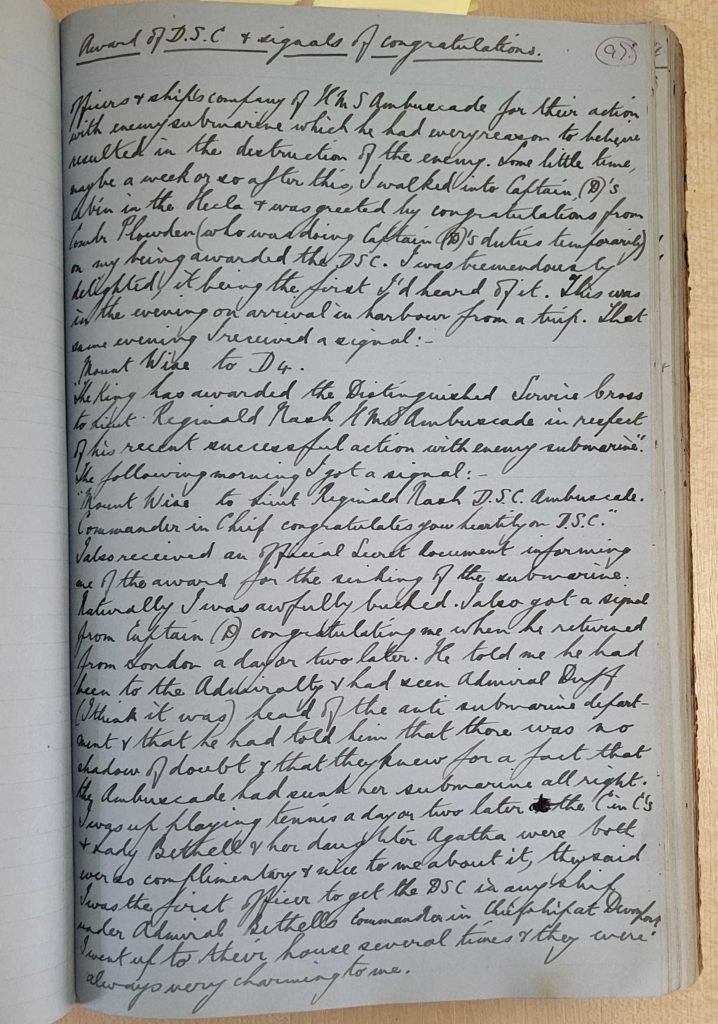 Award of D.S.C & signals of congratulations.
95.
officers & ship's company of H M S Ambuscade for their action
with enemy submarine which he had every reason to believe
resulted in the destruction of the enemy. Some little time,
maybe a week or so after this, I walked into Captain (D)'s
cabin in the Hecla & was greeted by congratulations from
Comdr Plowden (who was doing Captain (D)'s duties temporarily)
on my being awarded the D.S.C. I was tremendously
delighted, it being the first I'd heard of it. This was
in the evening on arrival in harbour from a trip. That
same evening I received a signal:-
"Mount Wise to D4.
"The King has awarded the Distinguished Service Cross
to Lieut. Reginald Nash H.M.S Ambuscade in respect
of his recent successful action with enemy submarine".
The following morning I got a signal:-
"Mount Wise to Lieut Reginald Nash D.S.C. Ambuscade.
Commander in Chief congratulates you heartily on D.S.C."
I also received an official Secret Document informing
me of the award for the sinking of the submarine.
Naturally I was awfully bucked. I also got a signal
from Captain (D) congratulating me when he returned
from London a day or two later. He told me he had
been to the Admiralty & had seen Admiral Duff
(I think it was) head of the anti submarine depart-
ment & that he had told him that there was no
shadow of doubt & that they knew for a fact that
the Ambuscade had sunk her submarine all right.
I was up playing tennis a day or two later the C in C's
& Lady Bethell & her daughter Agatha were both
ever so complimentary & nice to me about it, they said
I was the first officer to get the DSC in any ship
under Admiral Bethells Commander in Chiefship at Devonport
I went up to their house several times & they were
always very charming to me.